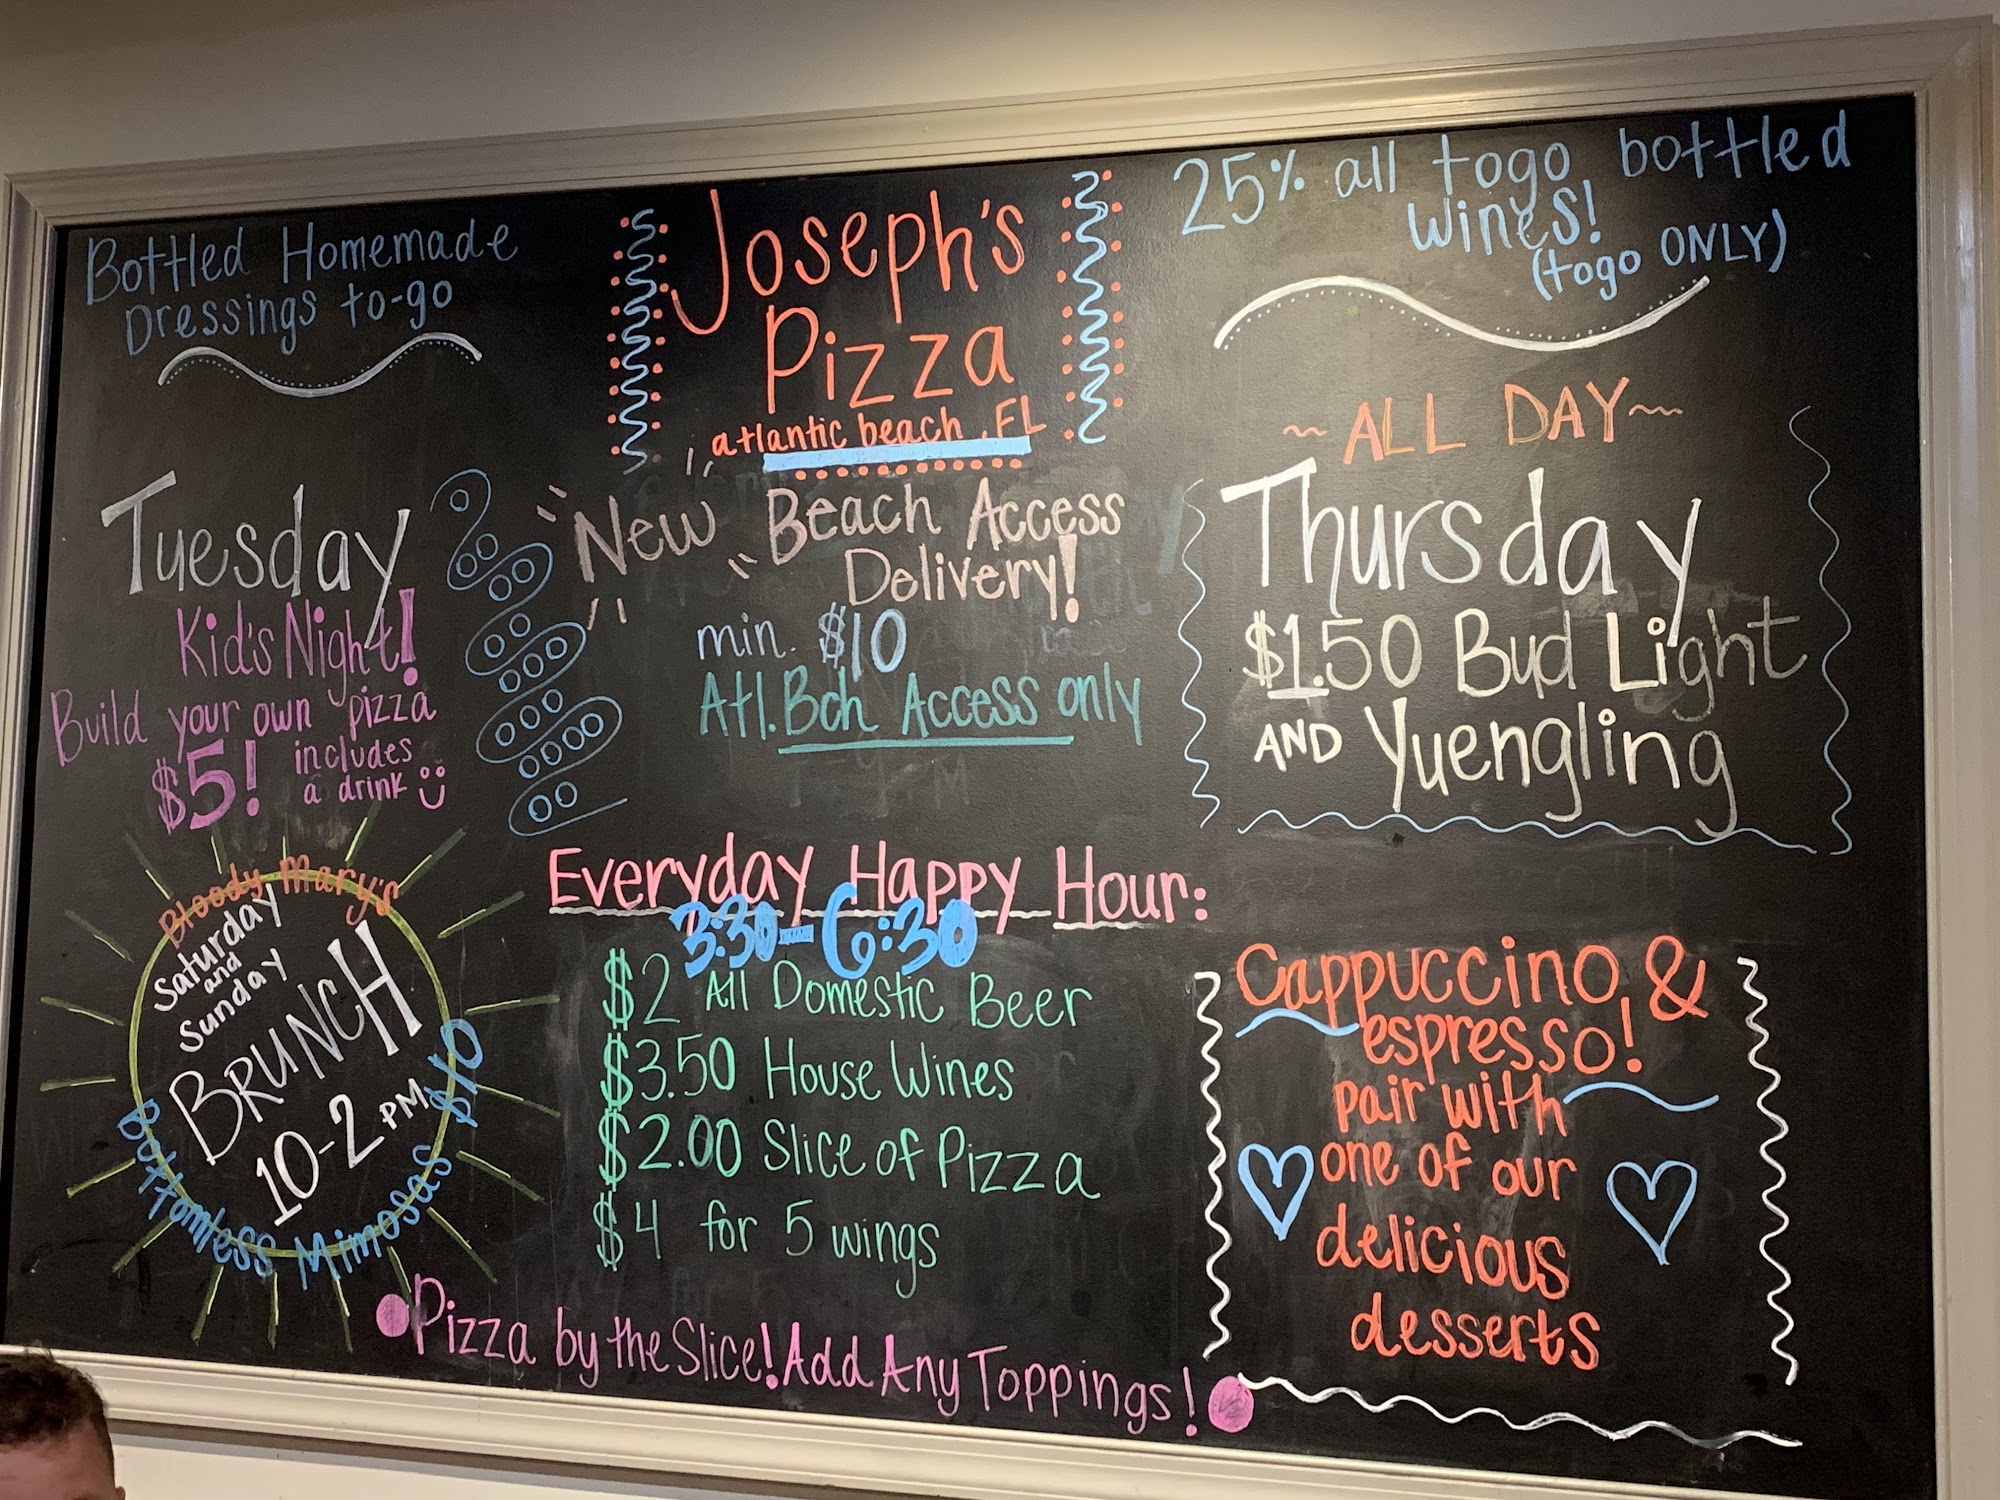 Bottled Homemade
Dressings to-go
Joseph's
Pizza
atlantic beach, FL
25% all togo bottled
wines!
(togo ONLY)
Tuesday
Kid's Night!
Build your own pizza
$5! includes
a drink
New Beach Access
Delivery!
min. $10
Atl. Bch Access only
~ALL DAY~
Thursday
$1.50 Bud Light
AND Yuengling
Bloody Mary's
Saturday
and
Sunday
BRUNCH
10-2 PM
Bottomless Mimosas $10
Everyday Happy Hour:
3:30-6:30
$2 All Domestic Beer
$3.50 House Wines
$2.00 Slice of Pizza
$4 for 5 wings
Cappuccino &
espresso!
pair with
one of our
delicious
desserts
Pizza by the Slice! Add Any Toppings!